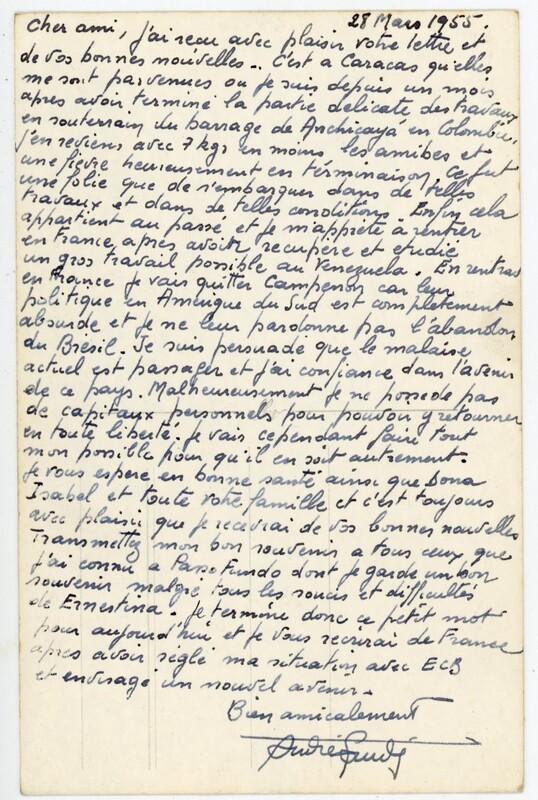 28 Mars 1955.
Cher ami, j'ai reçu avec plaisir votre lettre et
de vos bonnes nouvelles.. C'est a Caracas qu'elles
me sont parvenues ou je suis depuis un mois
apres avoir terminé la partie delicate des travaux
en souterrain du barrage de Anchicaya en Colombie.
j'en reviens avec 7 kgs en moins les amibes et
une fièvre heureusement en terminaison. Ce fut
une folie que de s'embarquer dans de telles
travaux et dans de telles conditions. Enfin cela
appartient au passé et je m'apprète à rentrer
en France, après avoir recupere et etudié
un gros travail possible au Venezuela. En rentrant
en France je vais quitter Campenon car leur
politique en Amerique du Sud est completement
absurde et je ne leur pardonne pas l'abandon
du Brésil. Je suis persuadé que le malaise
actuel est passager et j'ai confiance dans l'avenir
de ce pays. Malheureusement je ne possede pas
de capitaux personnels pour pouvoir y retourner
en toute liberté. Je vais cependant faire tout
mon possible pour qu'il en soit autrement.
Je vous espere en bonne santé ainsi que Dona
Isabel et toute votre famille et c'est toujours
avec plaisir que je recevrai de vos bonnes nouvelles
Transmettez mon bon souvenir a tous ceux que
j'ai connu a Passo Fundo dont je garde un bon
souvenir malgré tous les soucis et difficultés
de Ernestina. Je termine donc ce petit mot
pour aujourd'hui et je vous recrirai de France
après avoir réglé ma situation avec ECB
et envisagé un nouvel avenir.
Bien amicalement
André